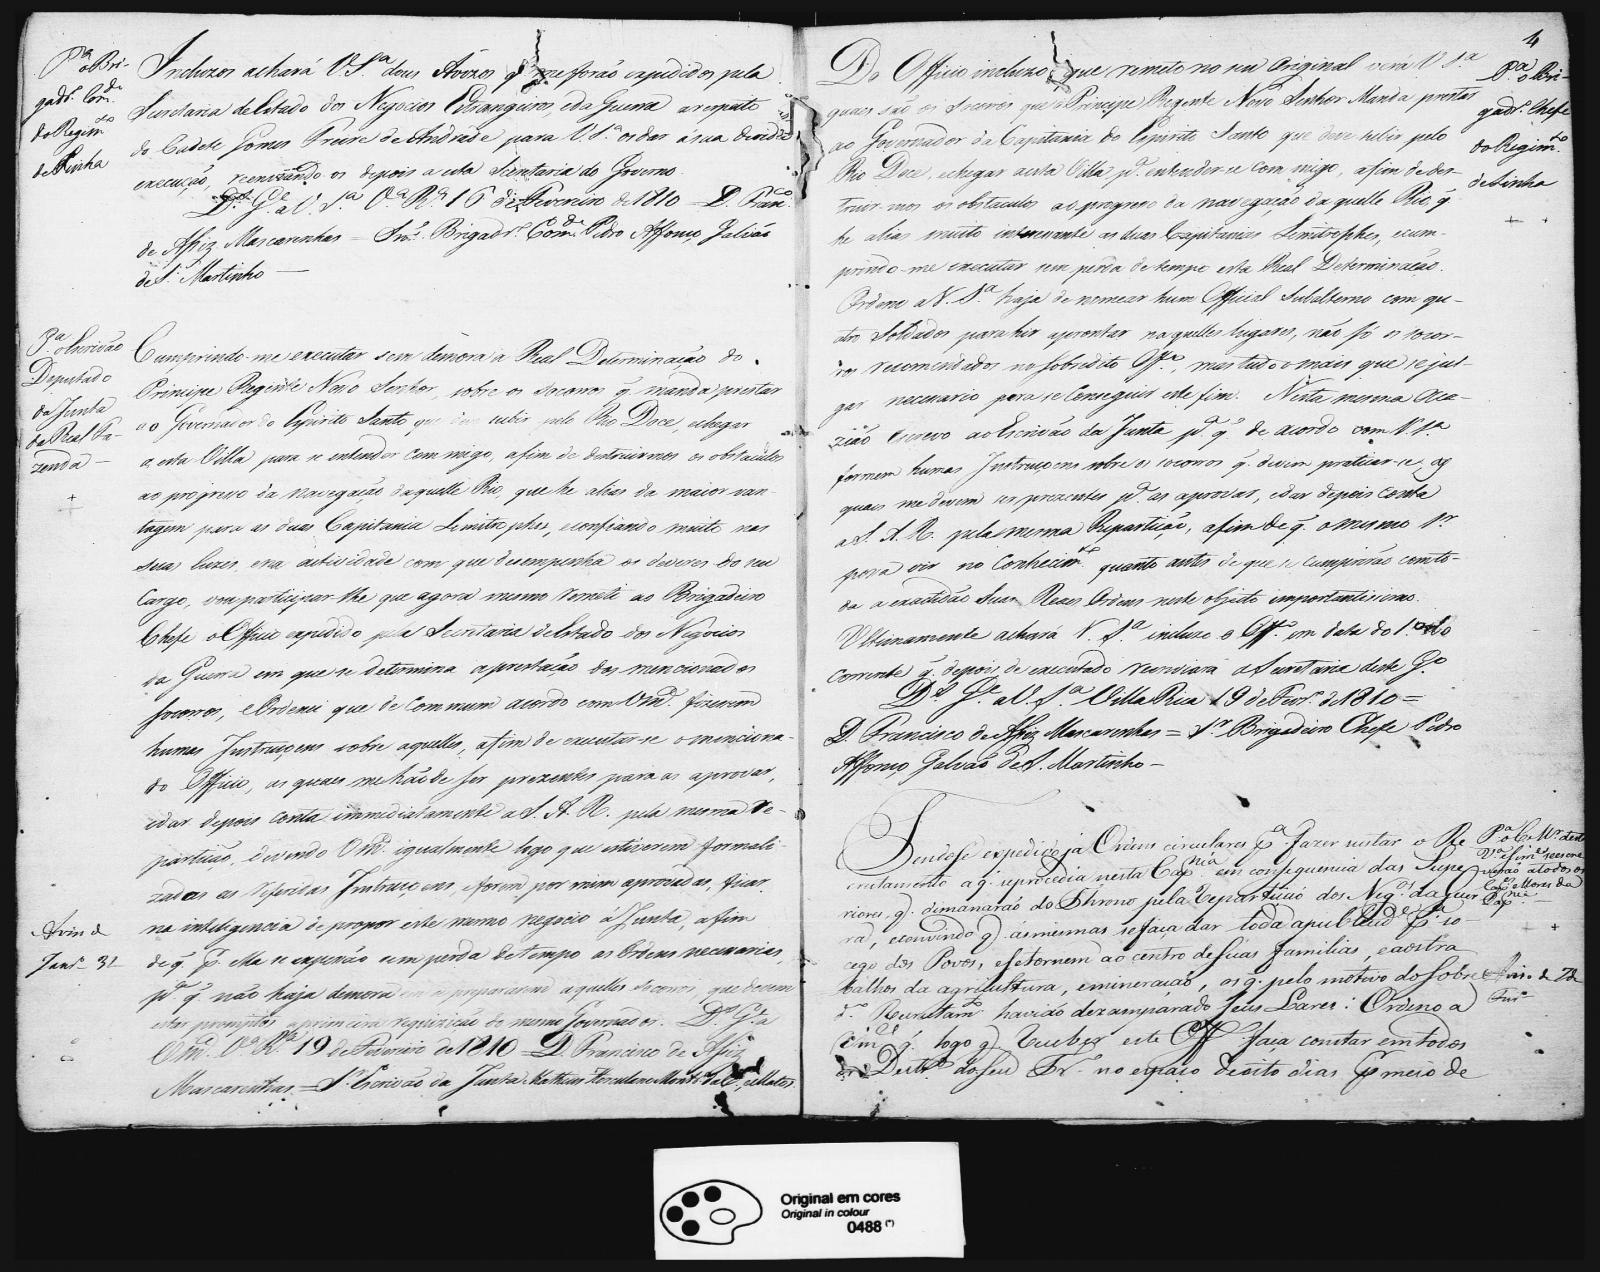 P.ª o Bri-
gadr. Com.de
do Regim.to
de Linha
Incluzos achará V. S.ª dous Avizos q̃ me forão expedidos pela
Secretaria de Estado dos Negocios Estrangeiros, e da Guerra a respeito
do Cadete Gomes Freire de Andrade para V. S.ª os dar á sua devida
execução, reenviando-os depois a esta Secretaria do Governo.
D.s G.e a V. S.ª V.ª R.ª 16 de Fevereiro de 1810 = D. Fran.co
de Assiz Mascarenhas = Snr. Brigadr. Com.de Pedro Affonso Galvão
de S. Martinho —
P.ª o Escrivão
Deputado
da Junta
da Real Fa-
zenda —
Cumprindo-me executar sem demora a Real Determinação do
Principe Regente Nosso Senhor, sobre os socorros q̃ manda prestar
ao Governador do Espirito Santo que deve subir pelo Rio Doce, e chegar
a esta Villa para se entender com migo, afim de destruirmos os obstaculos
ao progresso da navegação daquelle Rio, que he alias da maior van-
tagem para as duas Capitanias Limitrophes, e confiando muito nas
suas luzes, e na actividade com que desempenha os deveres do seu
Cargo, vou participar-lhe que agora mesmo remeti ao Brigadeiro
Chefe o Officio expedido pela Secretaria de Estado dos Negocios
da Guerra em que se determina a prestação dos mencionados
socorros, e Ordenei que de commum acordo com Vm.ce fizerem
humas Instruçoens sobre aquelles, afim de executar-se o menciona-
do Officio, as quaes me hão de ser prezentes para as aprovar,
e dar depois conta immediatamente a S. A. R. pela mesma re-
partição, devendo Vm.ce igualmente logo que estiverem formali-
zadas as referidas Instruçoens, e forem por mim aprovadas, ficar
na inteligencia de propor este mesmo negocio á Junta, afim
de q̃ p. Ella se expessão sem perda de tempo as Ordens necessarias,
p.ª q̃ não haja demora em se prepararem aquelles socorros, que devem
estar promptos a primeira requizição do mesmo Governador. D.s G.e a
Vm.ce V.ª R.ª 19 de Fevereiro de 1810 = D. Francisco de Assiz
Mascarenhas = Sr. Escrivão da Junta Matheus Herculano Mont.º
Aviso de
Janr.º 31
4
P.ª o Bri-
gadr. Chefe
do Regim.to
de Linha
Do Officio incluzo, que remeto no seu Original verá V. S.ª
quaes são os socorros que o Principe Regente Nosso Senhor Manda prestar
ao Governador da Capitania do Espirito Santo que deve subir pelo
Rio Doce, e chegar a esta Villa p.ª entender-se com migo, afim de des-
truir-mos os obstaculos ao progresso da navegação daquelle Rio, q̃
he alias muito interessante as duas Capitanias Limitrophes, e cum-
prindo-me executar sem perda de tempo esta Real Determinação.
Ordeno a V. S.ª haja de nomear hum Official Subalterno com qua-
tro Soldados para hir aprontar naquelles lugares, não só os socor-
ros recomendados no sobredito Off.º, mas tudo o mais que se jul-
gar necessario para se conseguir este fim. Nesta mesma Oca-
zião escrevo ao Escrivão da Junta p.ª q̃ de acordo com V. S.ª
formem humas Instruçoens sobre os socorros q̃ devem praticar-se, as
quaes me devem ser prezentes p.ª as aprovar, e dar depois conta
a S. A. R. pela mesma Repartição, afim de q̃ o mesmo Sr.
possa vir no Conhecim.to quanto antes de que se cumprirão com to-
da a exactidão Suas Reaes Ordens neste objecto importantissimo.
Ultimamente achará V. S.ª incluzo o Off.º em data do 1.º do
corrente q̃ depois de executado reenviará a Secretaria deste G.º
D.s G.e a V. S.ª Villa Rica 19 de Fevr.º de 1810 =
D. Francisco de Assiz Mascarenhas = Sr. Brigadeiro Chefe Pedro
Affonso Galvão de S. Martinho —
P.ª o C. Mr. desta
V.ª e sim.es se escre
verão a todos os
Cap.es Mores da
Cap.nia —
Tendose expedido já Ordens circulares p.ª fazer sustar o Re
crutamento a q̃ se procedia nesta Cap.nia em consequencia das Supe
riores, q̃ dimanarão do Throno pela Repartição dos Neg.os da Guer
ra, e convindo q̃ as mesmas se faça dar toda a publicid.e p.ª so-
cego dos Povos, e se tornem ao centro de suas familias, e aos tra
balhos da agricultura, e mineração, os q̃ pelo motivo do sobre
d.º Recrutam.to havião dezamparado seus Lares: Ordeno a
Vm.ce q̃ logo q̃ receber este Off.º faça constar em todos
os Destr.os do seu Tr.º no espaço de oito dias p. meio de
Aviso de
Original em cores
Original in colour
0488 (*)